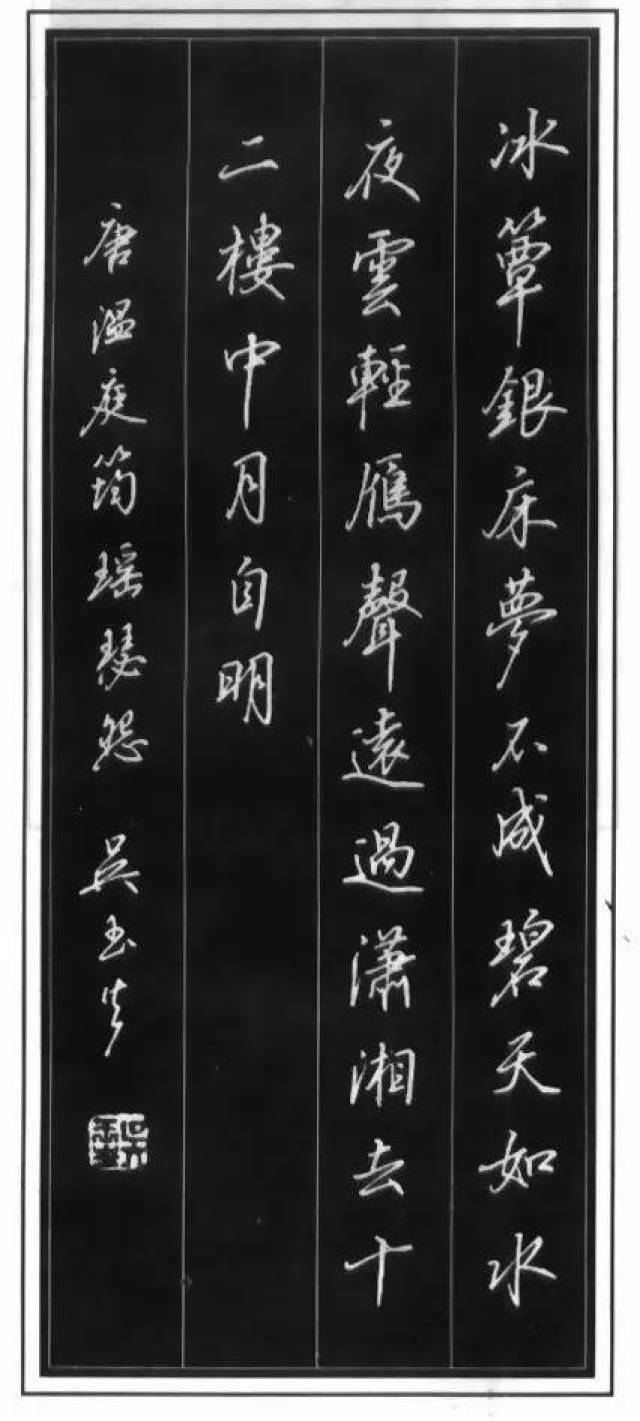 冰簟銀床夢不成碧天如水
夜雲輕雁聲遠過瀟湘去十
二樓中月自明
唐溫庭筠瑶瑟怨 吳玉生